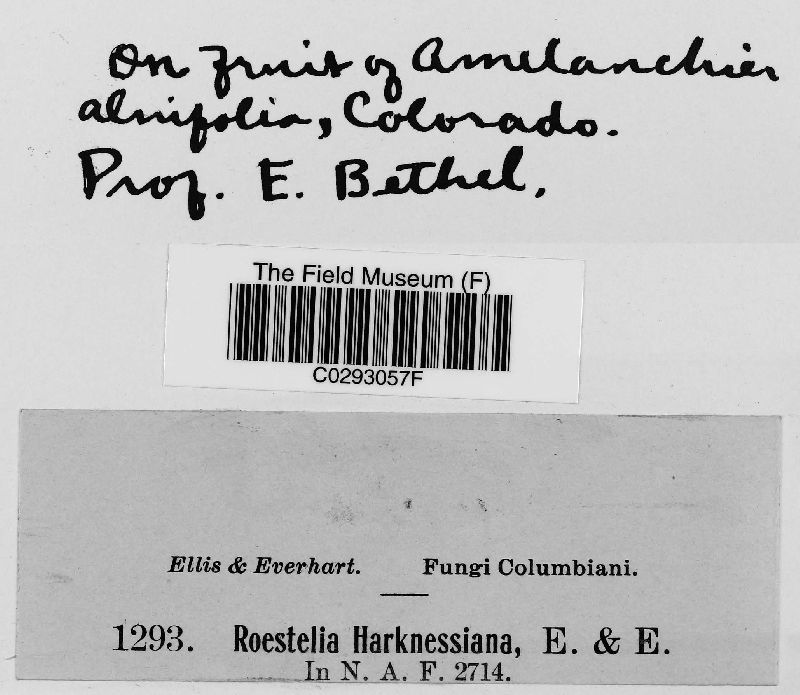 On fruit of Amelanchier
alnifolia, Colorado.
Prof. E. Bethel.
The Field Museum (F)
C0293057F
Ellis & Everhart. Fungi Columbiani.
1293. Roestelia Harknessiana, E. & E.
In N. A. F. 2714.